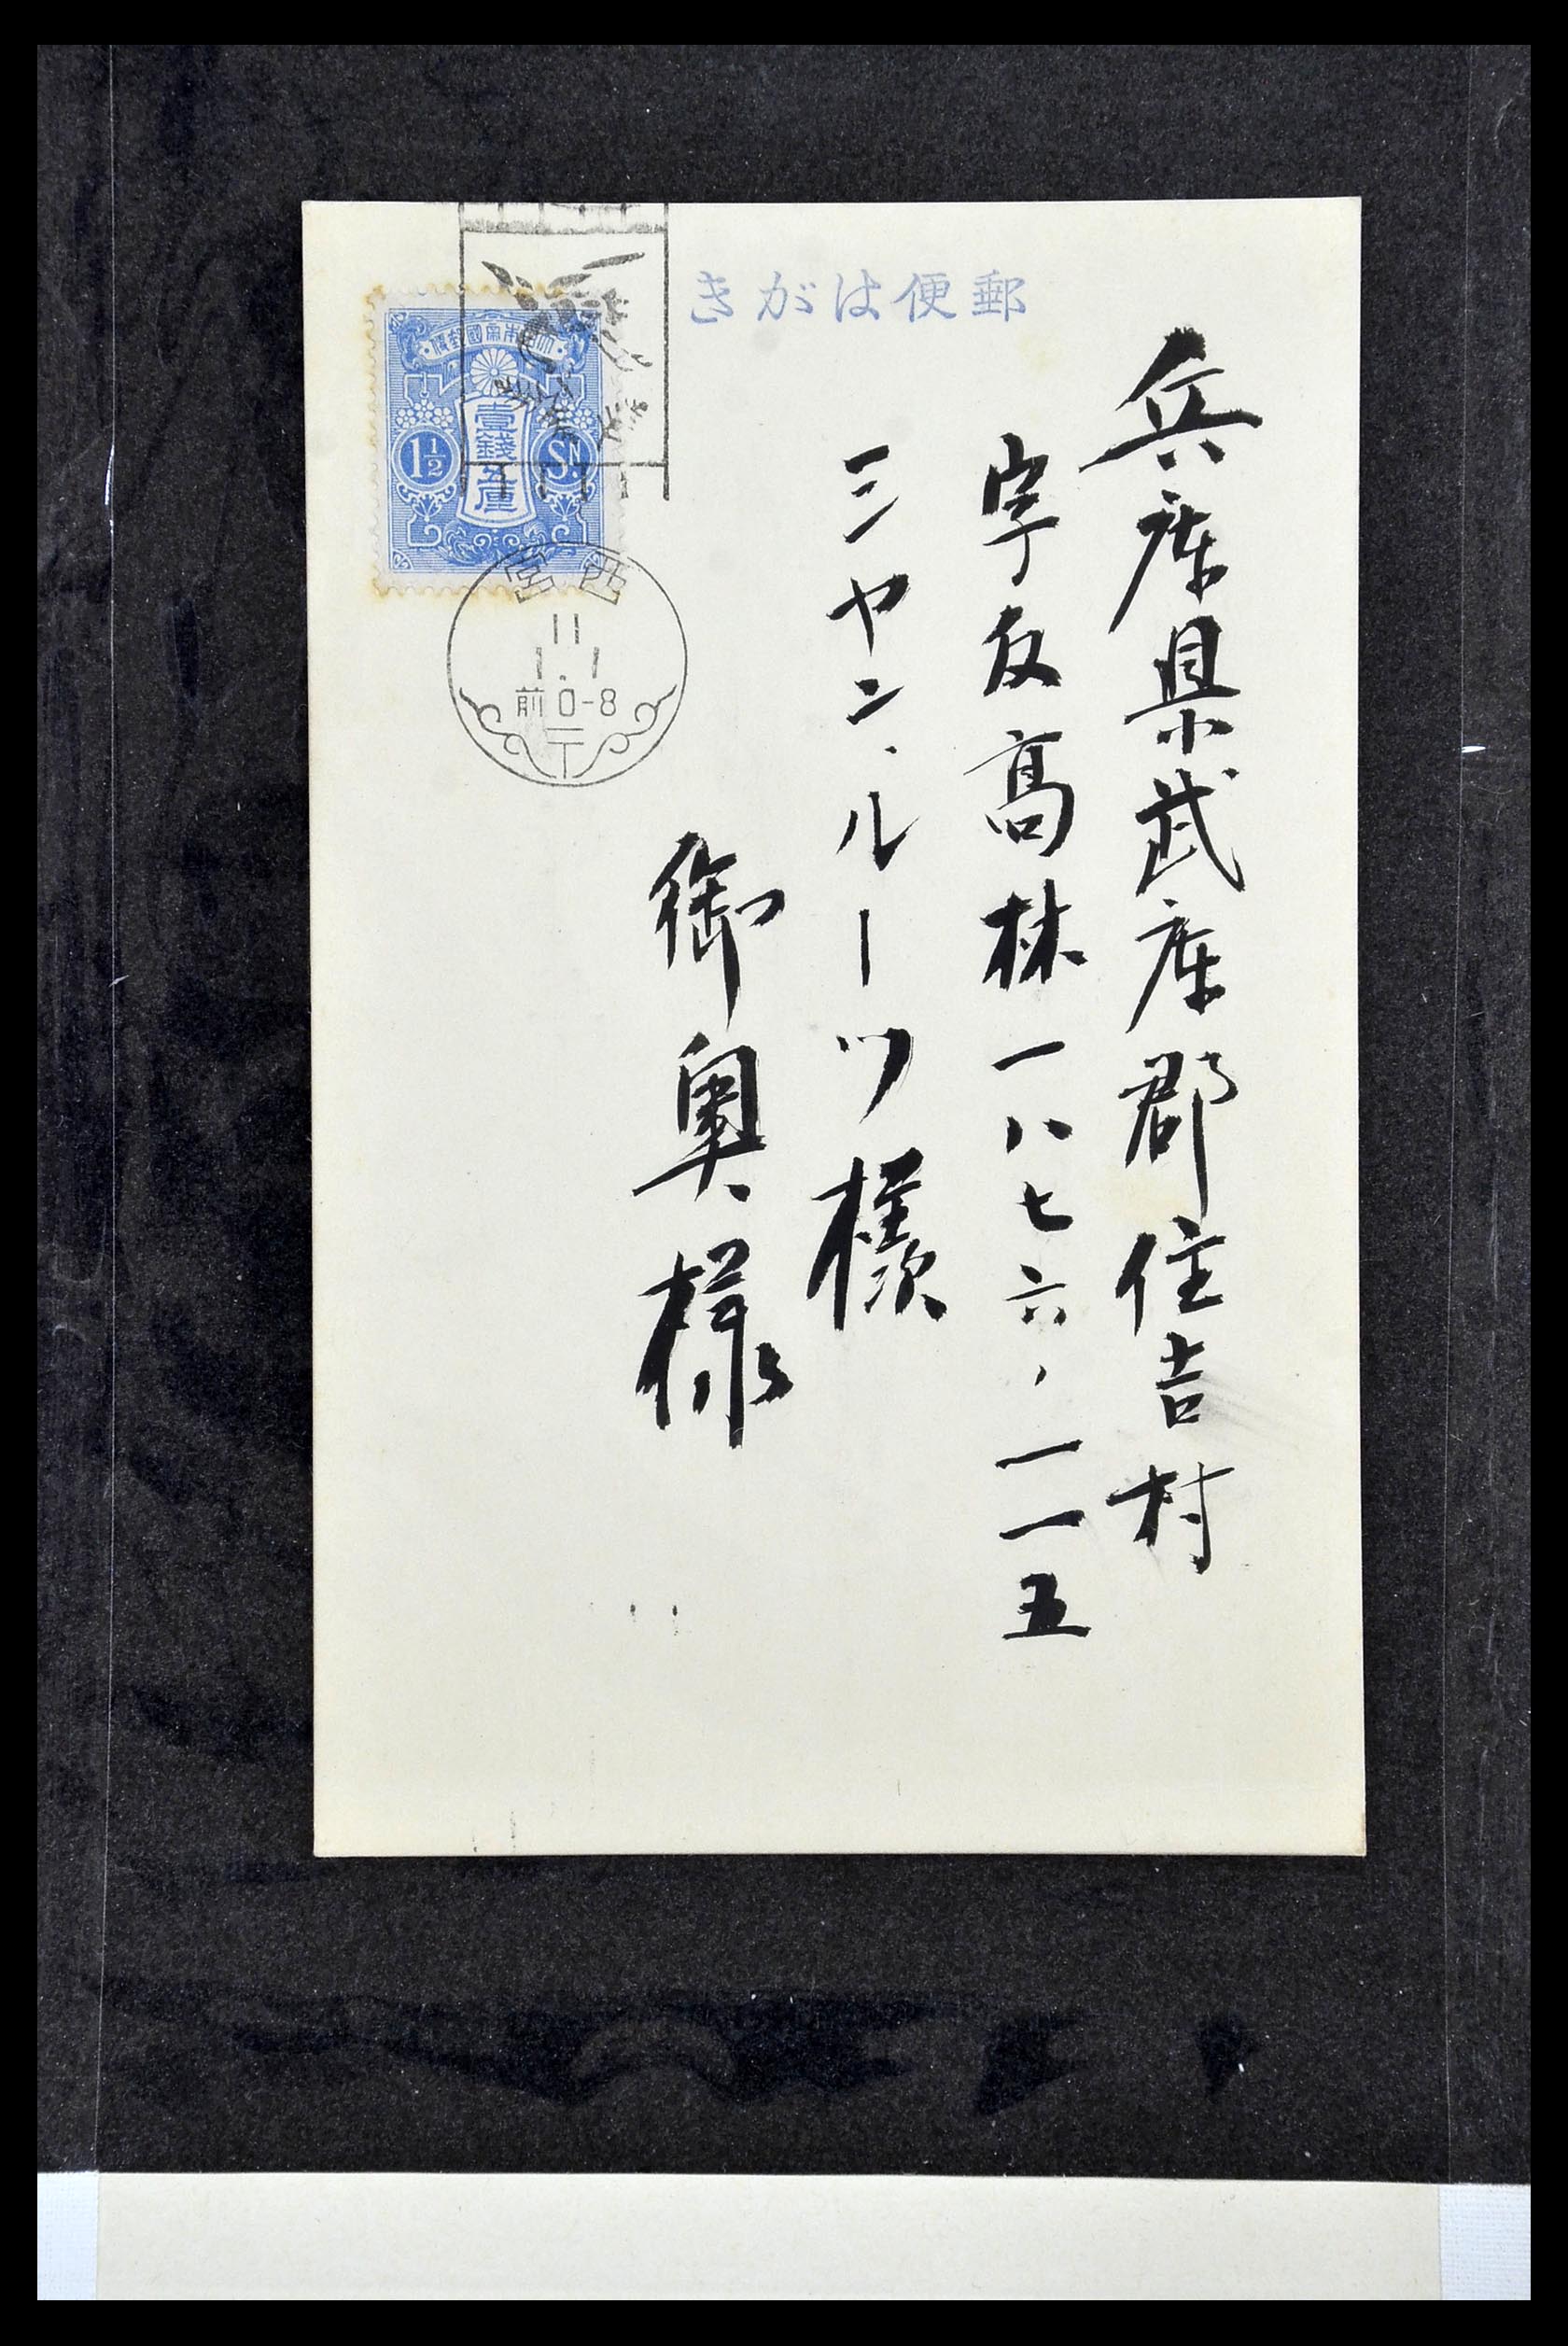 郵便はがき
大日本帝國郵便
壹錢五厘
1½
SN
西宮
11
1.1
前0-8
兵庫県武庫郡住吉村
字反高林一八七六、一一五
ミヤン、ルーツ様
御奥様